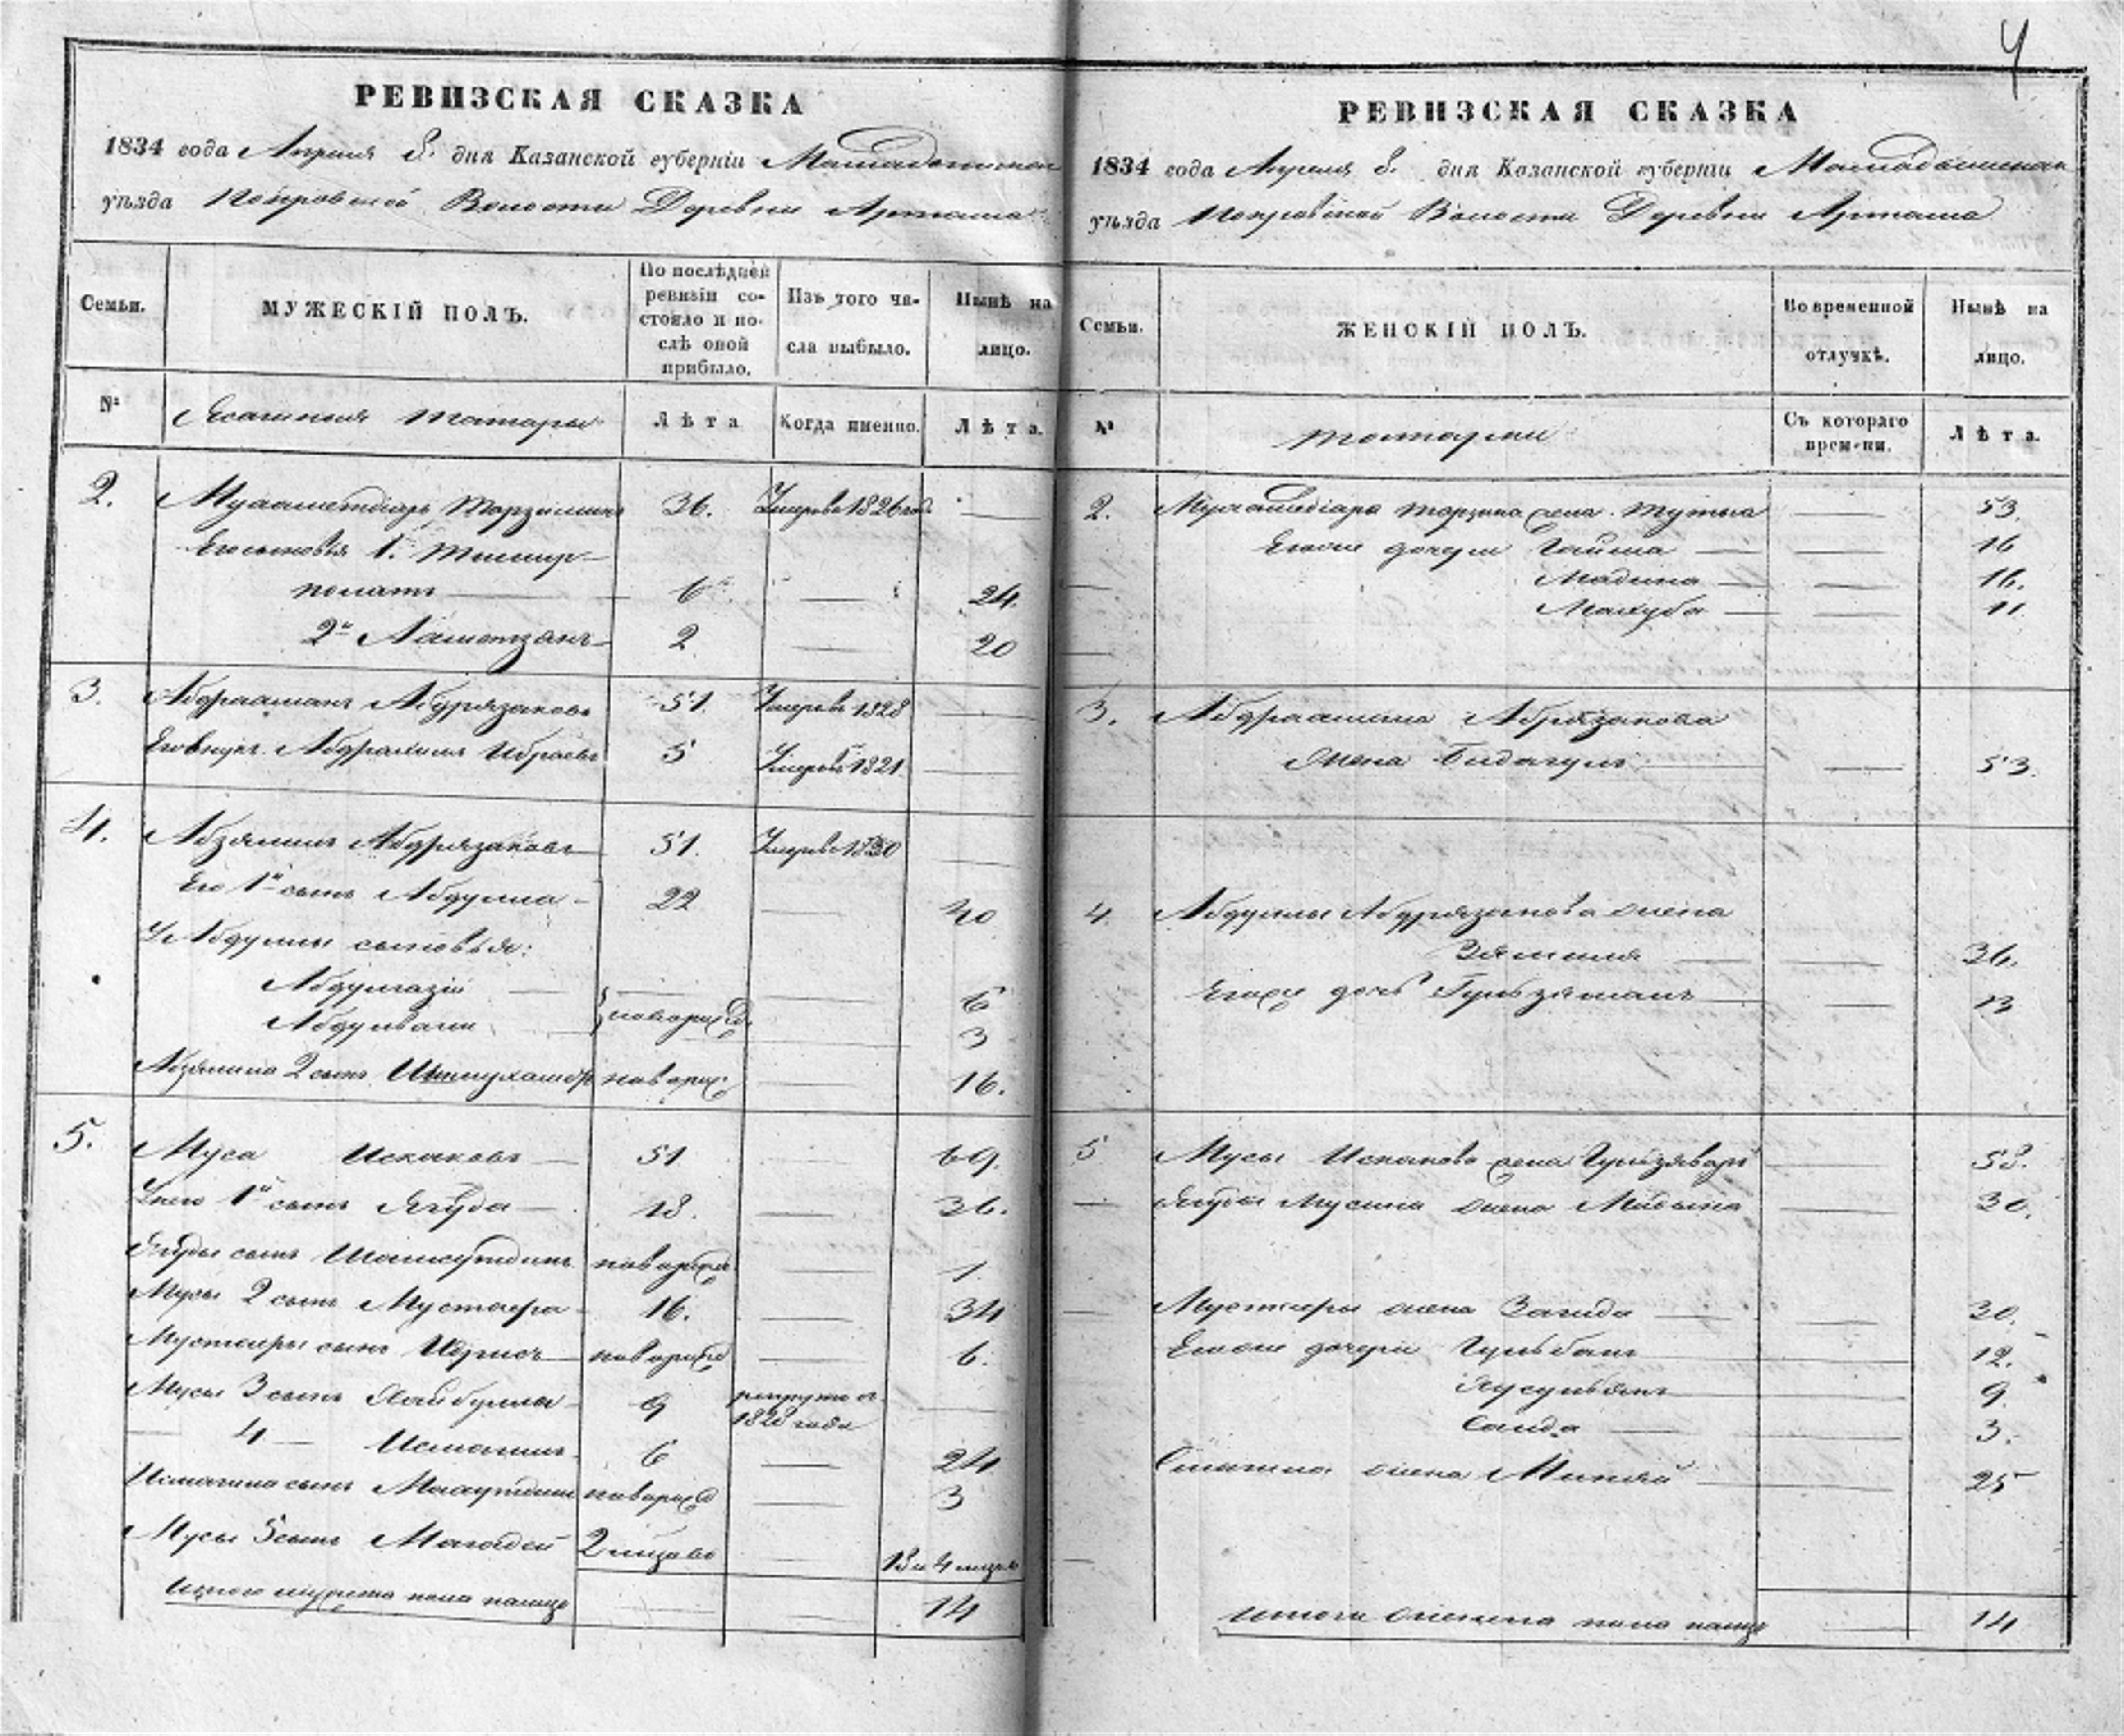 4
РЕВИЗСКАЯ СКАЗКА
1834 года Апреля 8. дня Казанской губерніи Мамадышскаго
уѣзда Покровской Волости Деревни Арташа
Семьи.
МУЖЕСКІЙ ПОЛЪ.
По послѣдней
ревизіи со-
стояло и по-
слѣ оной
прибыло.
Изъ того чи-
сла выбыло.
Нынѣ на
лицо.
№
Ясашныя татары
Лѣта
Когда именно.
Лѣта.
2. 36. Умеръ въ 1826 год. —
Его сыновья 1.й Тимир-
полатъ — 6 — 24.
2й 2 — 20
3. Абдрахманъ Абдрязаковъ 51. Умеръ въ 1828 —
Его внукъ Абдрахимъ Ибраевъ 5 Умеръ въ 1821 —
4. Абзялилъ Абдрязаковъ 51. Умеръ въ 1830 —
Его 1й сынъ Абдулла 22 — 40
У Абдуллы сыновья:
Абдулгазій — — 6
новорожд.
— 3
2 сынъ Ишмухаметъ новорож. — 16.
5. Муса Искаковъ — 51 — 69.
У него 1й сынъ Ягуда — 18. — 36.
Ягуды сынъ Шамсутдинъ новорожд. — 1.
Мусы 2 сынъ Мустафа 16. — 34
Мустафы сынъ Идрисъ новорожд — 6.
Мусы 3 сынъ Хайбулла 9 рекрутъ
1828 года —
— 4 — Исмагилъ 6 — 24
Исмагила сынъ новорожд — 3
Мусы 5 сынъ Магадей 2 мѣсяцовъ — 18 и 4 месяц
Итого мужеска пола на лицо — — 14
РЕВИЗСКАЯ СКАЗКА
1834 года Апреля 8. дня Казанской губерніи Мамадышскаго
уѣзда Покровской Волости Деревни Арташа
Семьи.
ЖЕНСКІЙ ПОЛЪ.
Во временной
отлучкѣ.
Нынѣ на
лицо.
№
татарки
Съ котораго
времени.
Лѣта.
2. жена — 53.
Ево же дочери Гайша — — 16
Мадина — — 16.
Махуба — — 11.
3. Абдрахмана Абдрязакова
жена Бидагуль — — 53.
4. Абдуллы Абдрязакова жена
Зямиля — — 36.
Его же дочь Гульзяманъ — — 13
5 Мусы Искакова жена — 58.
— Ягуды Мусина жена — 30.
— Мустафы жена Загида — — 30.
Ево же дочери Гульбанъ — — 12.
— — 9.
Саида — — 3.
жена — — 25
Итого женска пола на лицо — 14